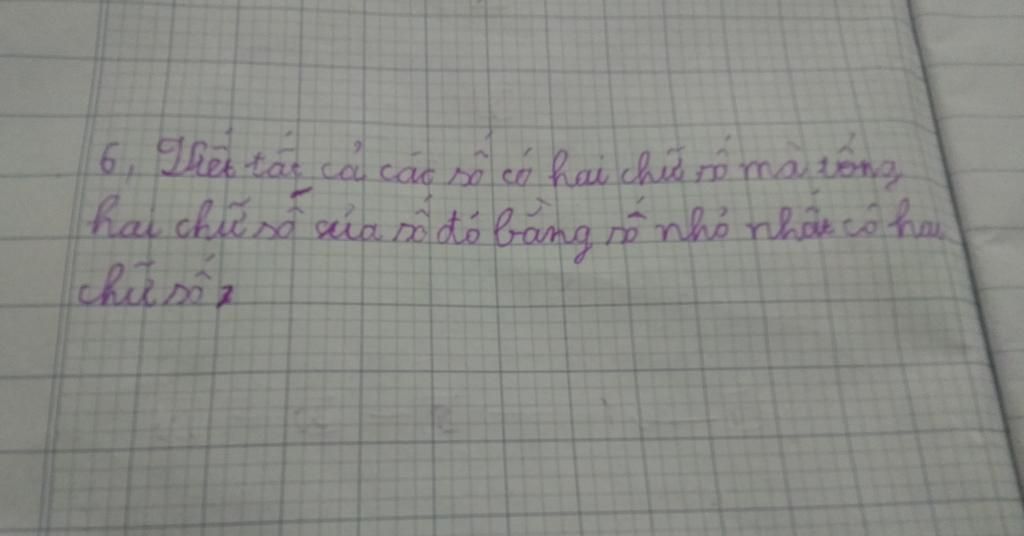 6, Viết tất cả các số có hai chữ số mà tổng
hai chữ số của số đó bằng số nhỏ nhất có hai
chữ số?